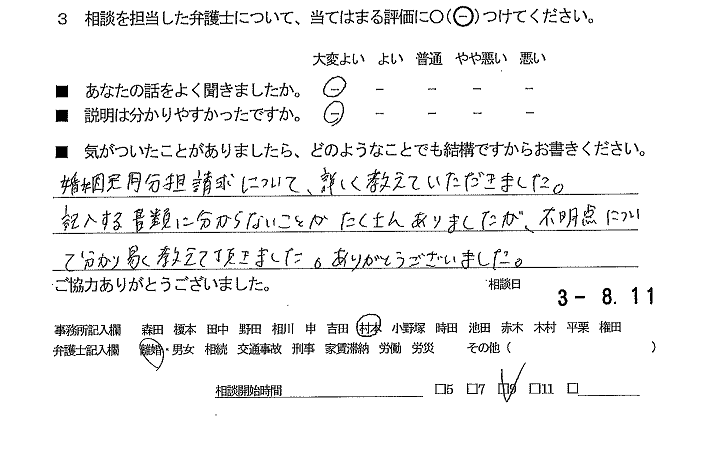 3 相談を担当した弁護士について、当てはまる評価に○(－)つけてください。
大変よい よい 普通 やや悪い 悪い
■ あなたの話をよく聞きましたか。 － － － － －
■ 説明は分かりやすかったですか。 － － － － －
■ 気がついたことがありましたら、どのようなことでも結構ですからお書きください。
婚姻費用分担請求について、詳しく教えていただきました。
記入する書類に分からないことがたくさんありましたが、不明点につい
て分かり易く教えて頂きました。ありがとうございました。
ご協力ありがとうございました。 相談日 3-8.11
事務所記入欄 森田 榎本 田中 野田 相川 申 吉田 村本 小野塚 時田 池田 赤木 木村 平栗 権田
弁護士記入欄 離婚・男女 相続 交通事故 刑事 家賃滞納 労働 労災 その他 ( )
相談開始時間 □5 □7 □9 □11 □